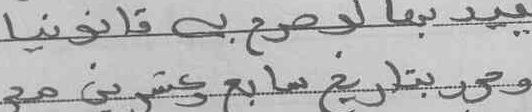 بيد بها لو صرح به قانونيا
وحرر بتاريخ سابع وعشرين مـ